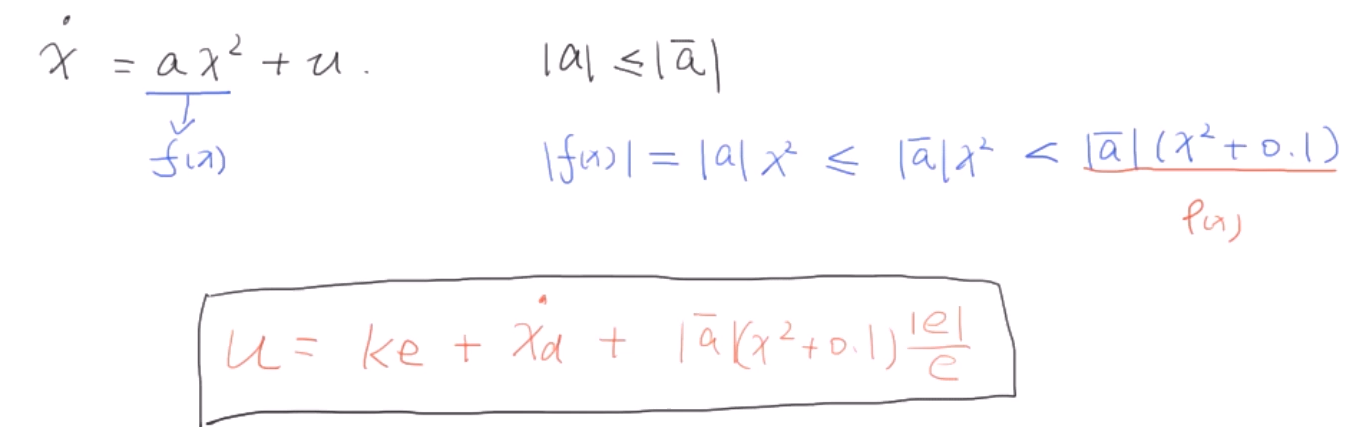 ẋ = ax² + u. |a| ≤ |a̅|
f(x) |f(x)| = |a| x² ≤ |a̅|x² < |a̅|(x² + 0.1)
ρ(x)
u = ke + ẋd + |a̅|(x²+0.1) |e|/e